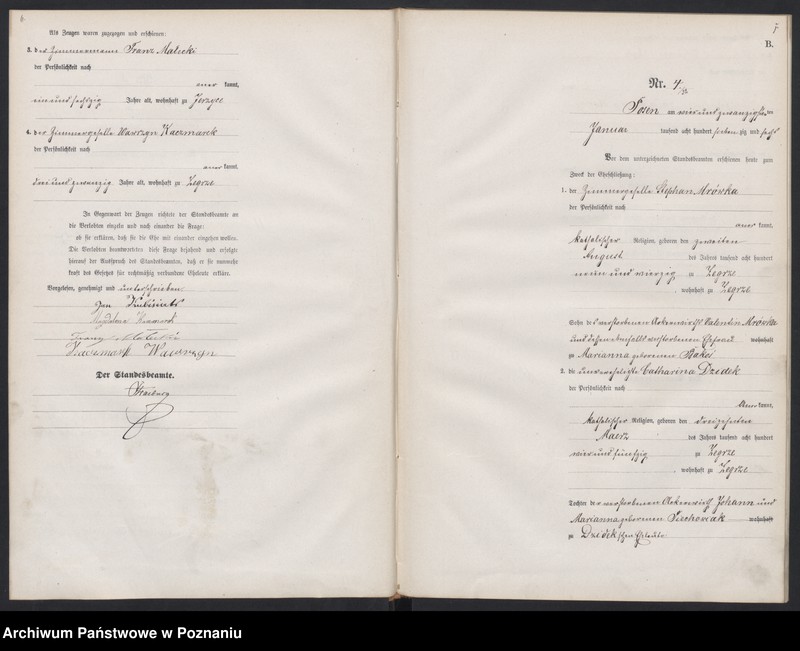 6.
Als Zeugen waren zugezogen und erschienen:
3. der Zimmermann Franz Malecki
der Persönlichkeit nach
kannt,
ein und sechzig Jahre alt, wohnhaft zu Jerzyce
4. der Zimmergeselle Wawrzyn Kaczmarek
der Persönlichkeit nach
kannt,
drei und zwanzig Jahre alt, wohnhaft zu Zegrze
In Gegenwart der Zeugen richtete der Standesbeamte an
die Verlobten einzeln und nach einander die Frage:
ob sie erklären, daß sie die Ehe mit einander eingehen wollen.
Die Verlobten beantworteten diese Frage bejahend und erfolgte
hierauf der Ausspruch des Standesbeamten, daß er sie nunmehr
kraft des Gesetzes für rechtmäßig verbundene Eheleute erkläre.
Vorgelesen, genehmigt und unterschrieben
Jan
Franz
Kaczmarek Wawrzyn
Der Standesbeamte.
7
B.
Nr. 4
Posen am vier und zwanzigsten
Januar tausend acht hundert siebenzig und sechs
Vor dem unterzeichneten Standesbeamten erschienen heute zum
Zweck der Eheschließung:
1. der Zimmergeselle Stephan Mrówka
der Persönlichkeit nach
kannt,
katholischer Religion, geboren den zweiten
August des Jahres tausend acht hundert
neun und vierzig zu Zegrze
, wohnhaft zu Zegrze
Sohn des verstorbenen Ackerwirth Valentin Mrówka
und dessen ebenfalls verstorbenen Ehefrau wohnhaft
zu Marianna geborenen
2. die unverehelichte Catharina Dzidek
der Persönlichkeit nach
kannt,
katholischer Religion, geboren den dreizehnten
Maerz des Jahres tausend acht hundert
vier und fünfzig zu Zegrze
, wohnhaft zu Zegrze
Tochter der verstorbenen Ackerwirth Johann und
Marianna geborenen wohnhaft
zu Dzidekschen Eheleute
Archiwum Państwowe w Poznaniu